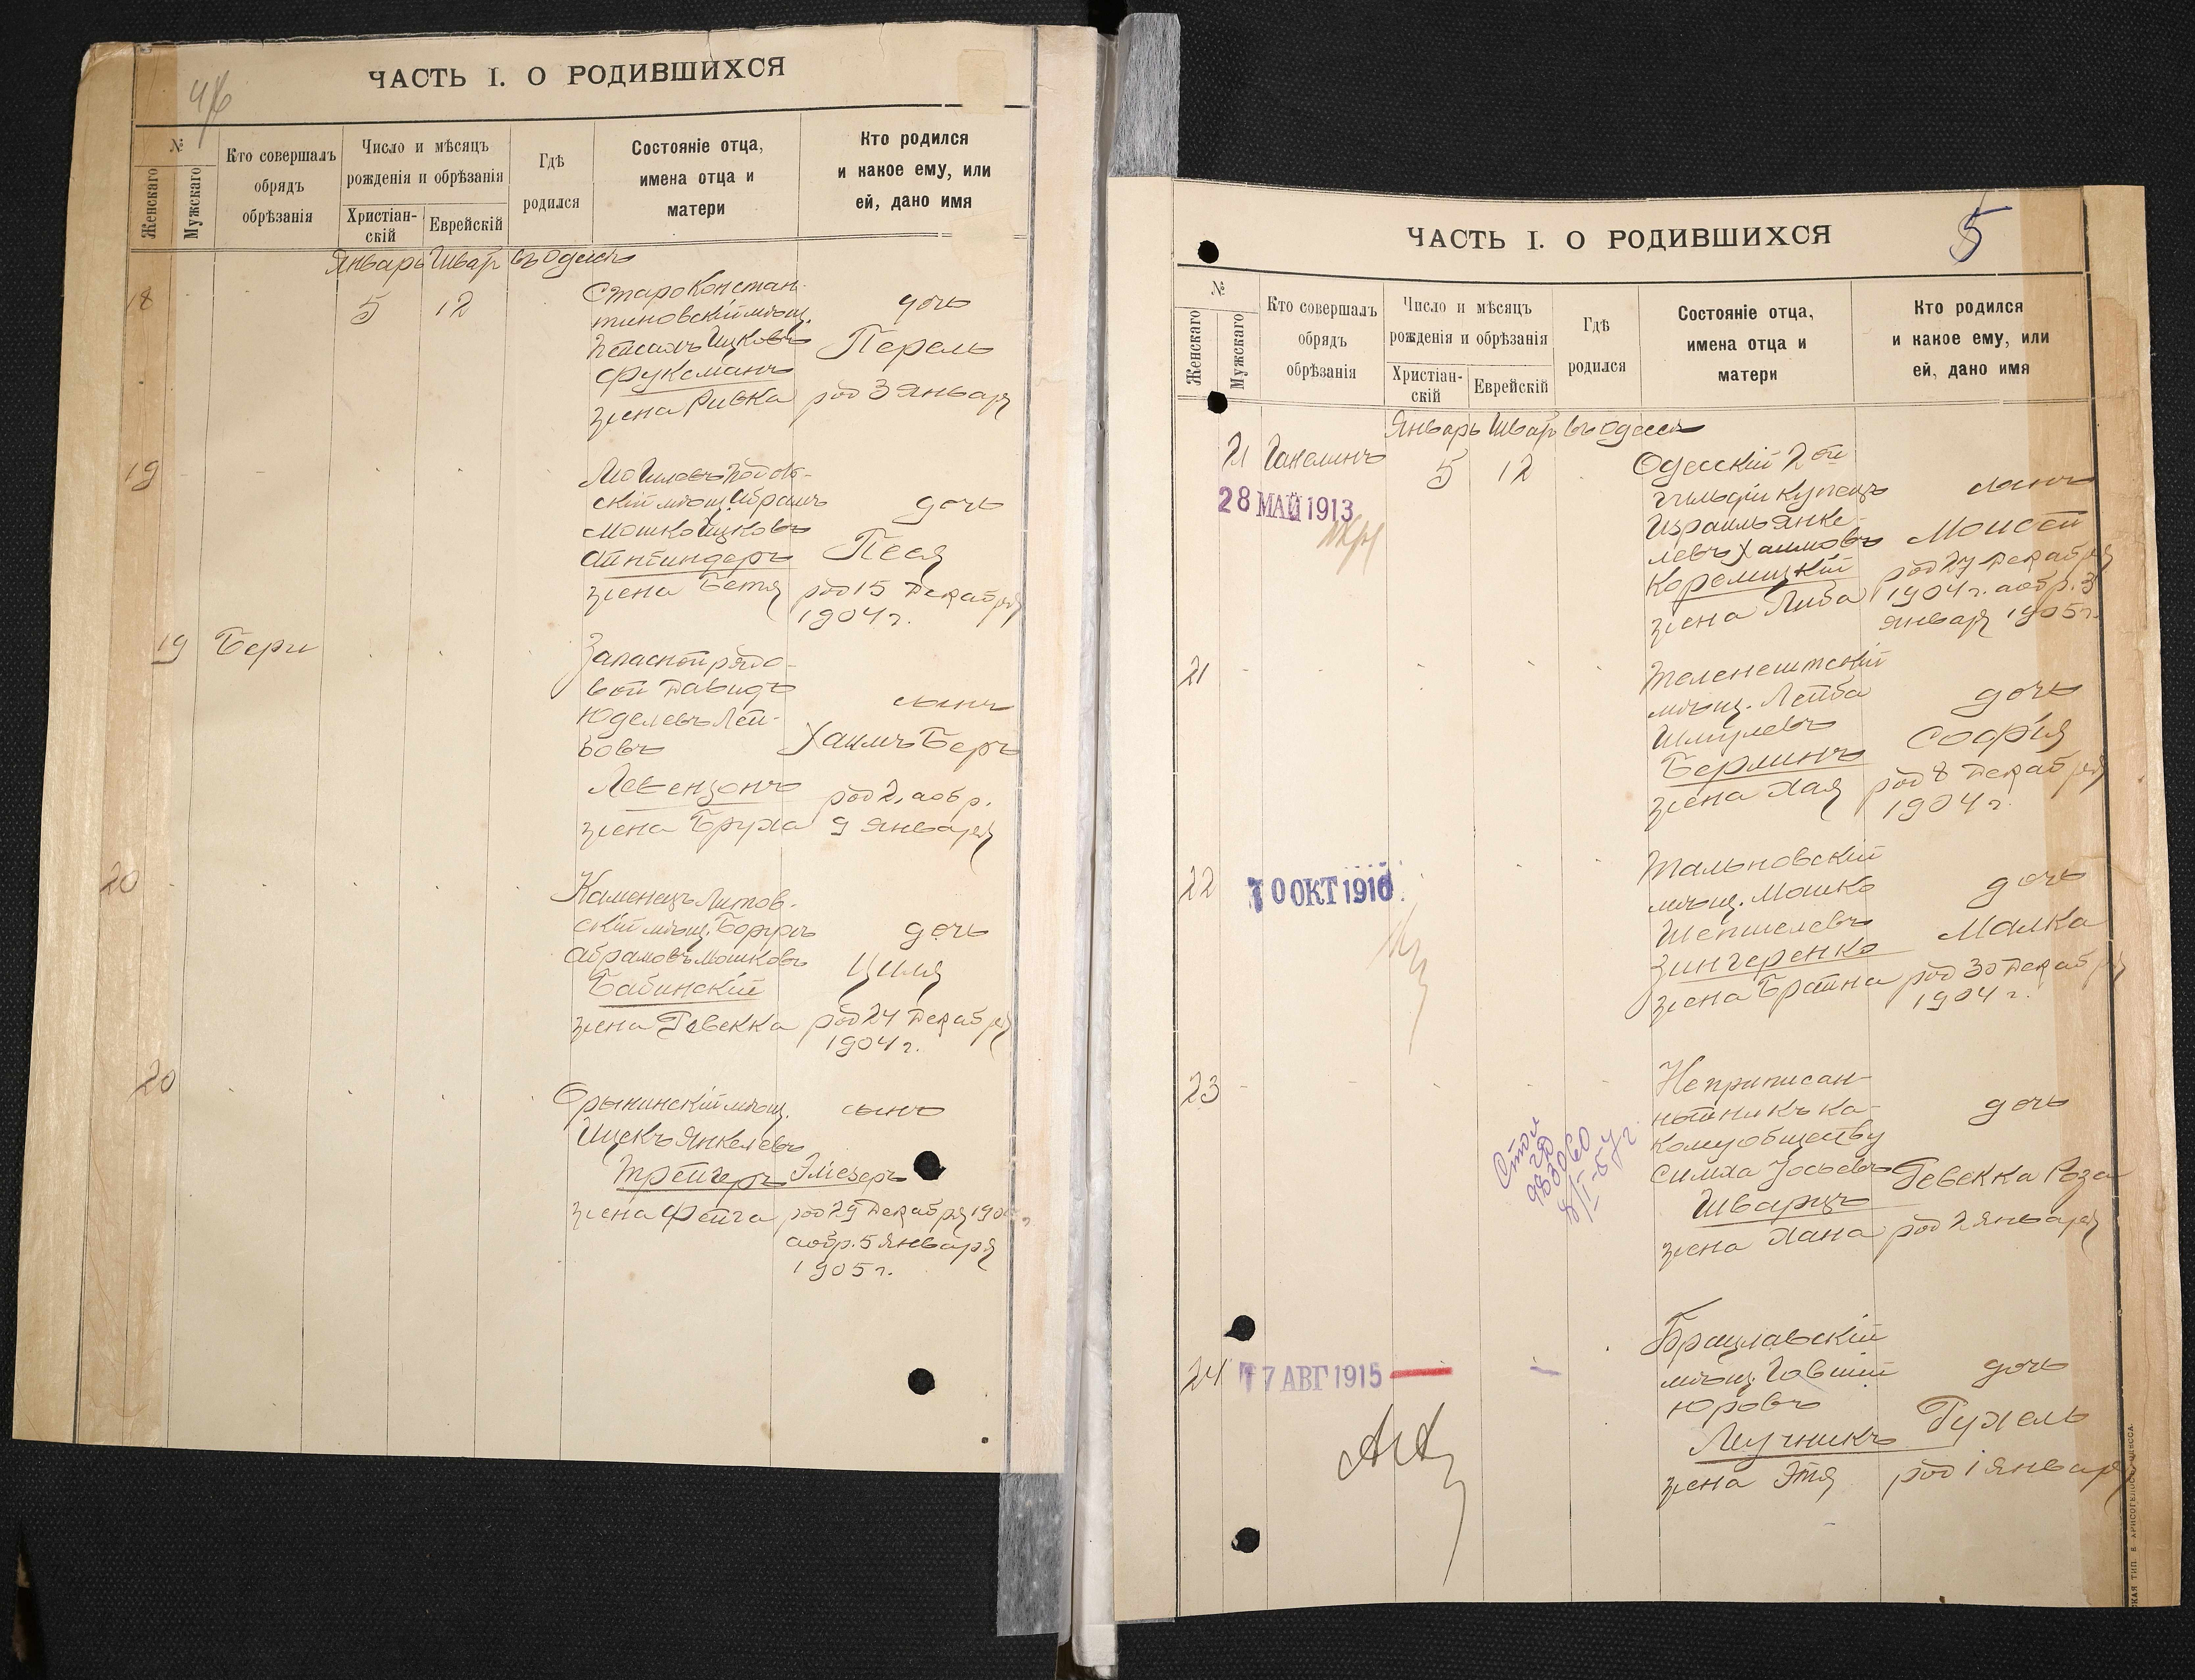 ЧАСТЬ I. О РОДИВШИХСЯ
№
Женскаго
Мужскаго
Кто совершалъ
обрядъ
обрѣзанія
Число и мѣсяцъ
рожденія и обрѣзанія
Христіан-
скій
Еврейскій
Гдѣ
родился
Состояніе отца,
имена отца и
матери
Кто родился
и какое ему, или
ей, дано имя
Январь Шватъ въ Одессѣ
18
5
12
Староконстан-
тиновскій мѣщ.
Пейсахъ Ицковъ
Фуксманъ
жена Ривка
дочь
Перель
род 3 Января
19
Могилевъ Подоль-
скій мѣщ. Абрамъ
Мошко Ицковъ
жена Бетя
дочь
Песя
род 15 Декабря
1904 г.
19
Бери
Запасной рядо-
вой Давидъ
Юделевъ Лей-
бовъ
Левензонъ
жена Бруха
сынъ
Хаимъ Беръ
род 2, а обр.
9 Января
20
Каменецъ Литов-
скій мѣщ. Борухъ
Абрамовъ Мошковъ
Бабинскій
жена Ревекка
дочь
Циля
род 24 Декабря
1904 г.
20
мѣщ.
Ицекъ Янкелевъ
Трейгеръ
жена Фейга
сынъ
Эліезеръ
род 29 Декабря
а обр. 5 Января
1905 г.
5
ЧАСТЬ I. О РОДИВШИХСЯ
№
Женскаго
Мужскаго
Кто совершалъ
обрядъ
обрѣзанія
Число и мѣсяцъ
рожденія и обрѣзанія
Христіан-
скій
Еврейскій
Гдѣ
родился
Состояніе отца,
имена отца и
матери
Кто родился
и какое ему, или
ей, дано имя
Январь Шватъ въ Одессѣ
21
Ганелинъ
28 МАЙ 1913
5
12
Одесскій 2ой
гильдіи купецъ
Израиль Янке-
левъ Хаимовъ
Коремицкій
жена Либа
сынъ
Моисей
род 27 Декабря
1904 г. а обр. 3
Января 1905 г.
21
Теленештскій
мѣщ. Лейба
Шмулевъ
Берлинъ
жена Хая
дочь
Софія
род 8 Декабря
1904 г.
22
10 ОКТ 1910
Тальновскій
мѣщ. Мошко
Шепшелевъ
Зингеренко
жена Брайна
дочь
Малка
род 30 Декабря
1904 г.
23
Не приписан-
ный ни къ ка-
кому обществу
Симха Іосьевъ
Шварцъ
жена Хана
дочь
Ревекка Роза
род 2 Января
24
17 АВГ 1915
Брацлавскій
мѣщ. Говшій
Юровъ
Лучникъ
жена Этя
дочь
Рухель
род 1 Января